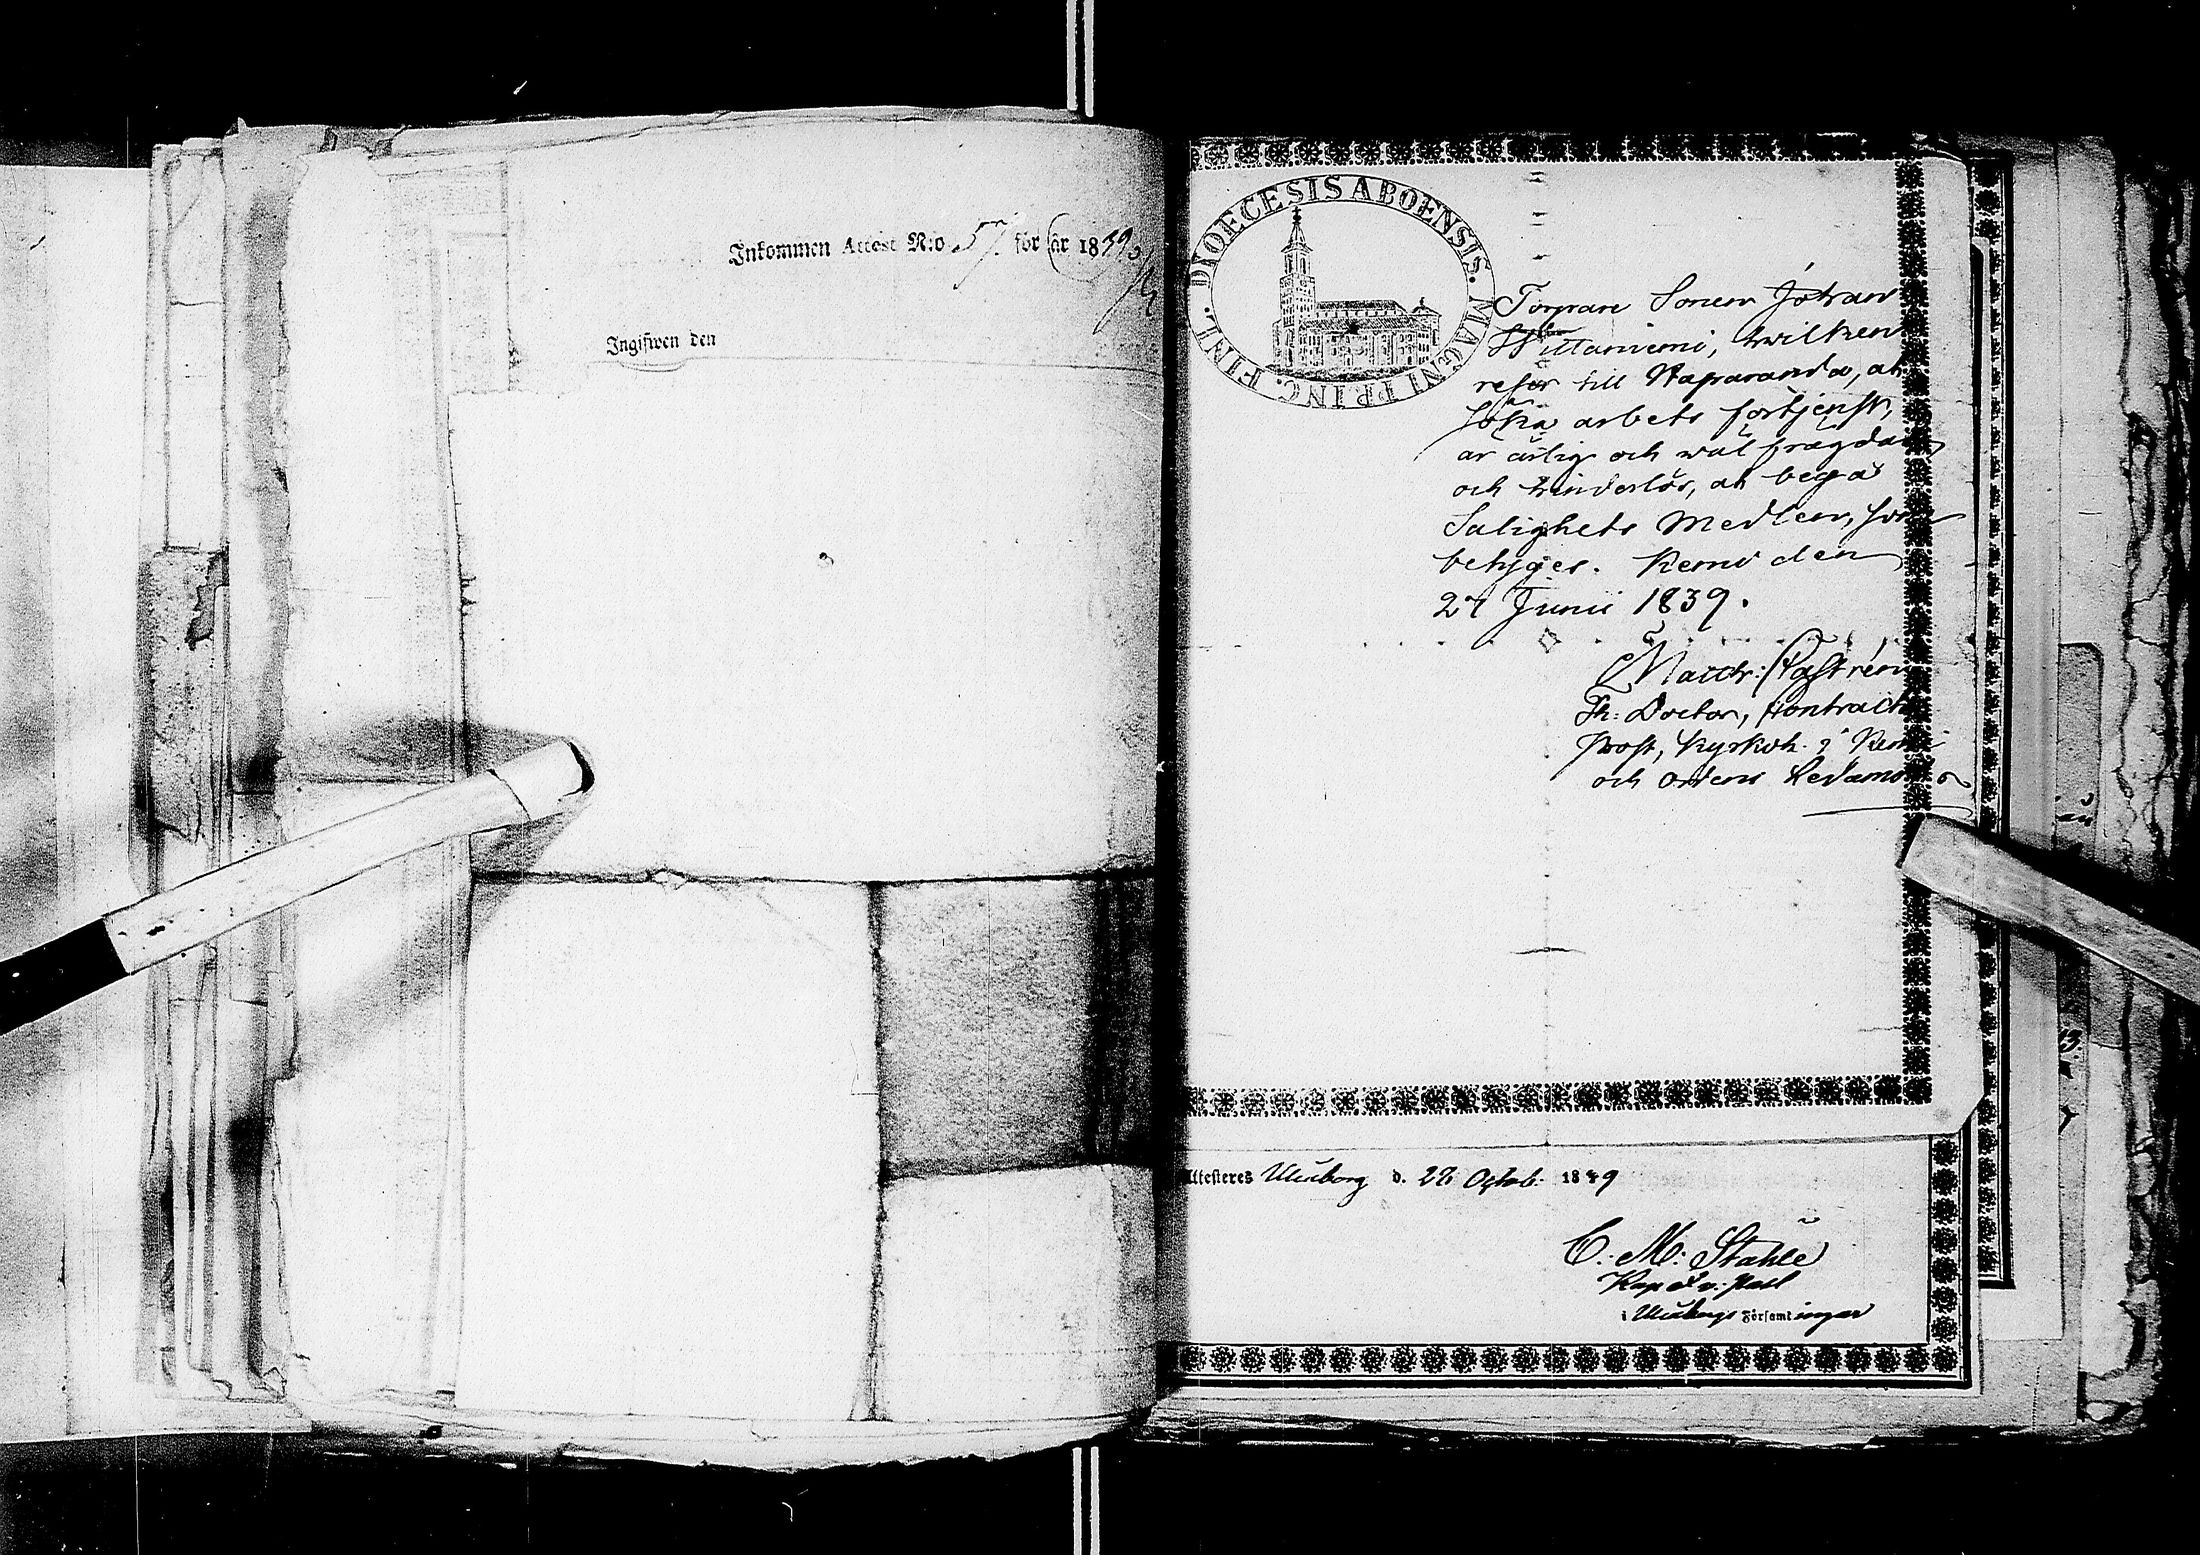 Inkommen Attest N:o 57. för år 1839.
Ingifwen den
DIOECESIS ABOENSIS. MAGNI PRINC. FINL.
Torpare Sonen Johan
Wittaniemi, hwilken
reser till Haparanda, at
söka arbets förtjenst,
är ärlig och wäl frägdad
och hinderlös, at begå
Salighets Medlen, som
betyges. Kemi den
27 Junii 1839.
Matth: Castrén
Th: Doctor, Contracts
Prost, Kyrkoh. i Kemi
och Ordens Ledamot
Attesteres Uleåborg d. 22 Octob. 1849
C. M. Stahle
Kap
i Uleåborgs Församlingar